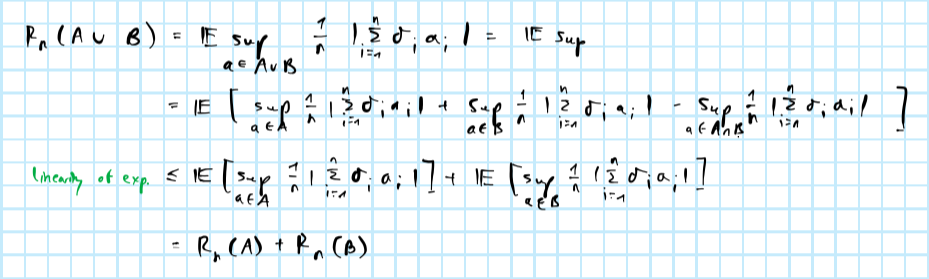 R_n (A ∪ B) = 𝔼 sup_{a ∈ A∪B} 1/n |∑_{i=1}^n σ_i a_i| = 𝔼 sup
= 𝔼 [ sup_{a∈A} 1/n |∑_{i=1}^n σ_i a_i| + sup_{a∈B} 1/n |∑_{i=1}^n σ_i a_i| - sup_{a∈A∩B} 1/n |∑_{i=1}^n σ_i a_i| ]
linearity of exp. ≤ 𝔼 [ sup_{a∈A} 1/n |∑_{i=1}^n σ_i a_i| ] + 𝔼 [ sup_{a∈B} 1/n |∑_{i=1}^n σ_i a_i| ]
= R_n (A) + R_n (B)